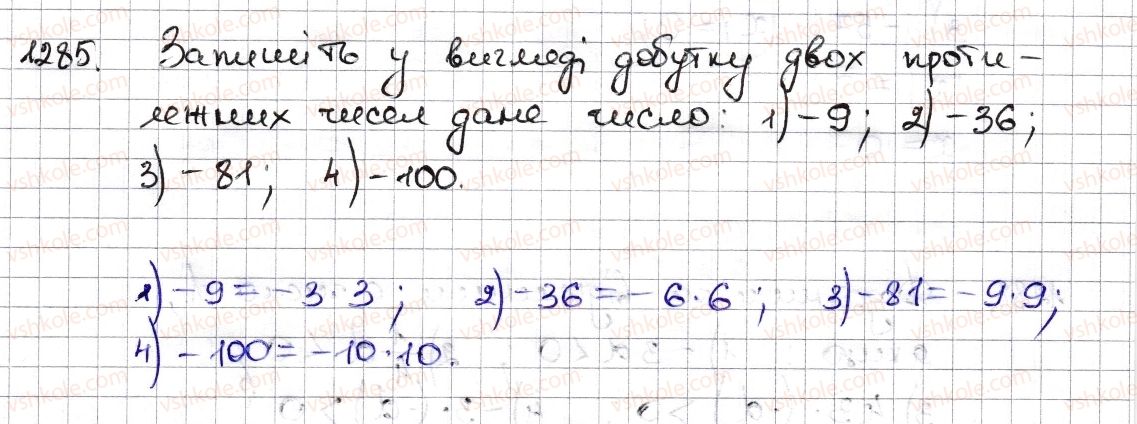 1285. Запишіть у вигляді добутку двох проти-
лежних чисел дане число: 1) -9; 2) -36;
3) -81; 4) -100.
1) -9 = -3·3; 2) -36 = -6·6; 3) -81 = -9·9;
4) -100 = -10·10.